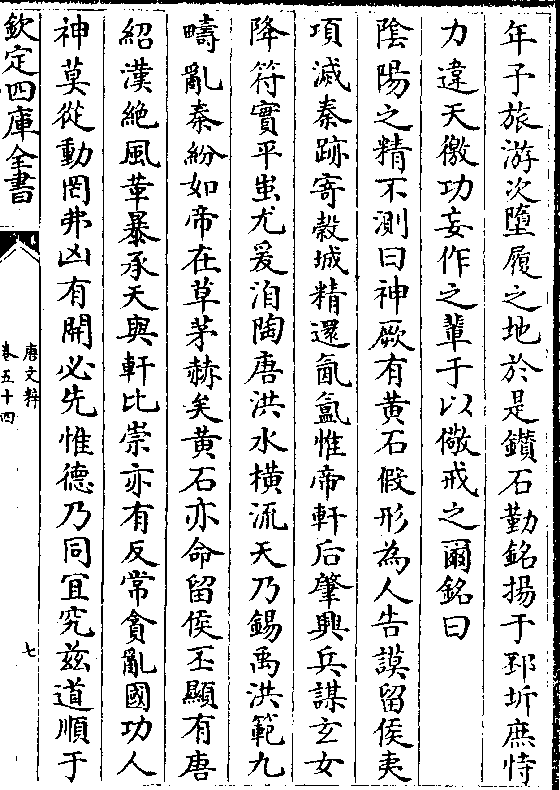 年子旅游次墮履之地於是鑽石勤銘揚于邳圻庶恃
力違天徼功妄作之輩于以儆戒之爾銘曰
陰陽之精不測曰神厥有黄石假形為人告謨留侯夷
項滅秦跡寄穀城精還氤氲惟帝軒后肇興兵謀玄女
降符實平蚩尤爰洎陶唐洪水橫流天乃錫禹洪範九
疇亂秦紛如帝在草茅赫矣黄石亦命留侯丕顯有唐
紹漢絶風革暴承天與軒比崇亦有反常貪亂國功人
神莫從動罔弗凶有開必先惟德乃同宜究兹道順于
欽定四庫全書
唐文粹
卷五十四
七